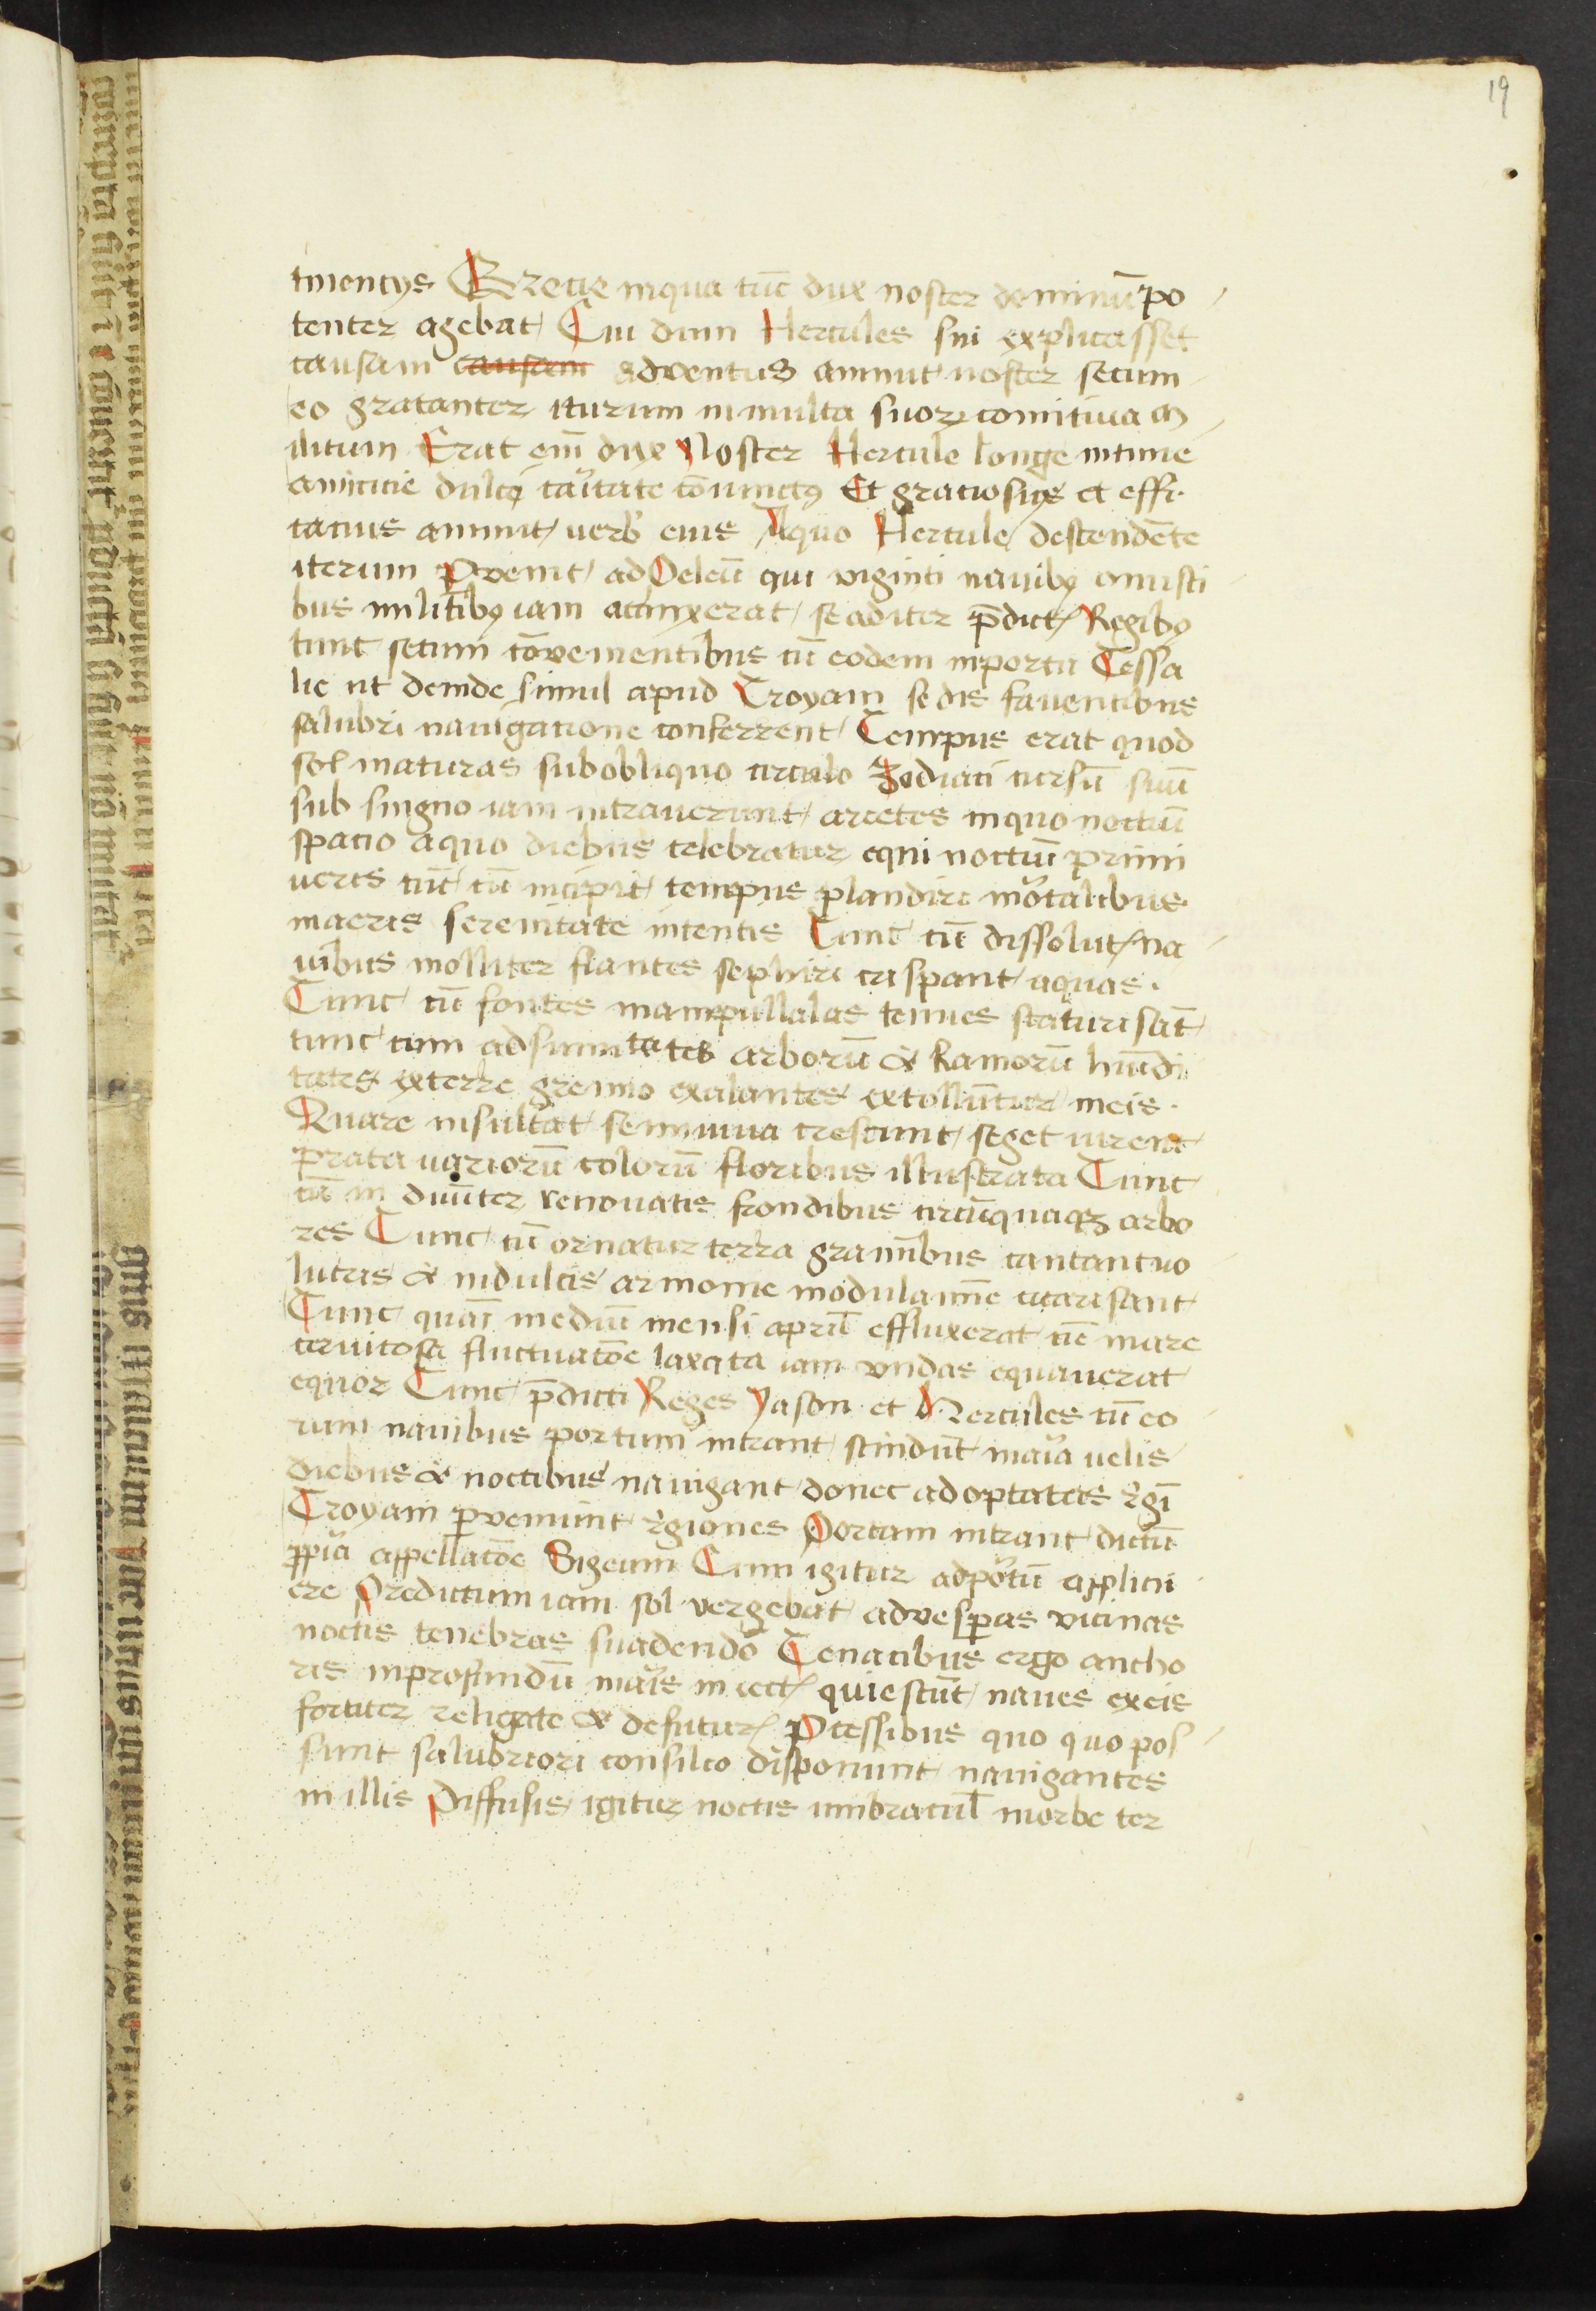 19
tinencys Grecie inqua tūc dux noster dominiū po
tenter agebat Cui dum Hercules sui explicasset
causam causam adventus annuit noster secum
eo gratanter iturum in multa suoꝝ comitiua m
ilitum Erat em̄ dux Noster Hercule longe intime
amicicie dulci caītate cōiunctꝯ Et graciosius et effi
cacius annuit verb eius Aquo Hercule descendēte
iterum ꝑvenit ad Peleū qui viginti navibꝯ omisti
bus militibꝯ iam accinxerat se aditer p̄dict Regibꝯ
tunc secum cōvenientibus cū eodem in portu Tessa
lie ut deinde simul apud Troyam se dis faventibus
salubri navigatione conferrent Tempus erat quod
sol maturas sub obliquo circulo Zodiaci cursū suū
sub singno iam intraverunt arietes in quo noctiū
spacio aquo diebus celebratur eqni noctiū primi
veris tūc cū incipit tempus plandiri mortalibus
in aeris serenitate intentis Tunc cū dissolut na
uibus molliter flantes sephiri crispant aquas.
Tunc cū fontes in ampullulas tenues scaturisāt
tunc cum ad summitates arborū & Ramorū hūidi
tates ex terre gremio exalantes extollūtur in eis.
Quare insultāt seminiua crescunt seget virent
prata variorū colorū floribus illustrata Tunc
cū in duūter renovatis frondibus circūquaqꝫ arbo
res Tunc cū ornatur terra gramībus cantant vo
lucris & in dulcis armonie modulamīe citarisant
Tunc quasi mediū mensi april effluxerat cū mare
cervicosa fluctuatōe laxata iam vndas equaverat
equor Tunc p̄dicti Reges Yason et Hercules cū eo
rum navibus portum intrant scindūt maīa velis
diebus & noctibus navigant donec ad optatas r̄gī
Troyam ꝑveniunt r̄giones Portam intrant dictū
ꝓpīa appellatōe Sigeum Cum igitur ad portū applicu
ere Predictum iam sol vergebat ad vesꝑas vicinas
noctis tenebras suadendo Tenacibus ergo ancho
ris in profundū maīs in iect quiescūt naves ex eis
fortiter religate & de futur ꝓcessibus quo quo pos
sunt salubriori consilio disponunt navigantes
in illis Diffusis igitur noctis umbracul in orbe ter